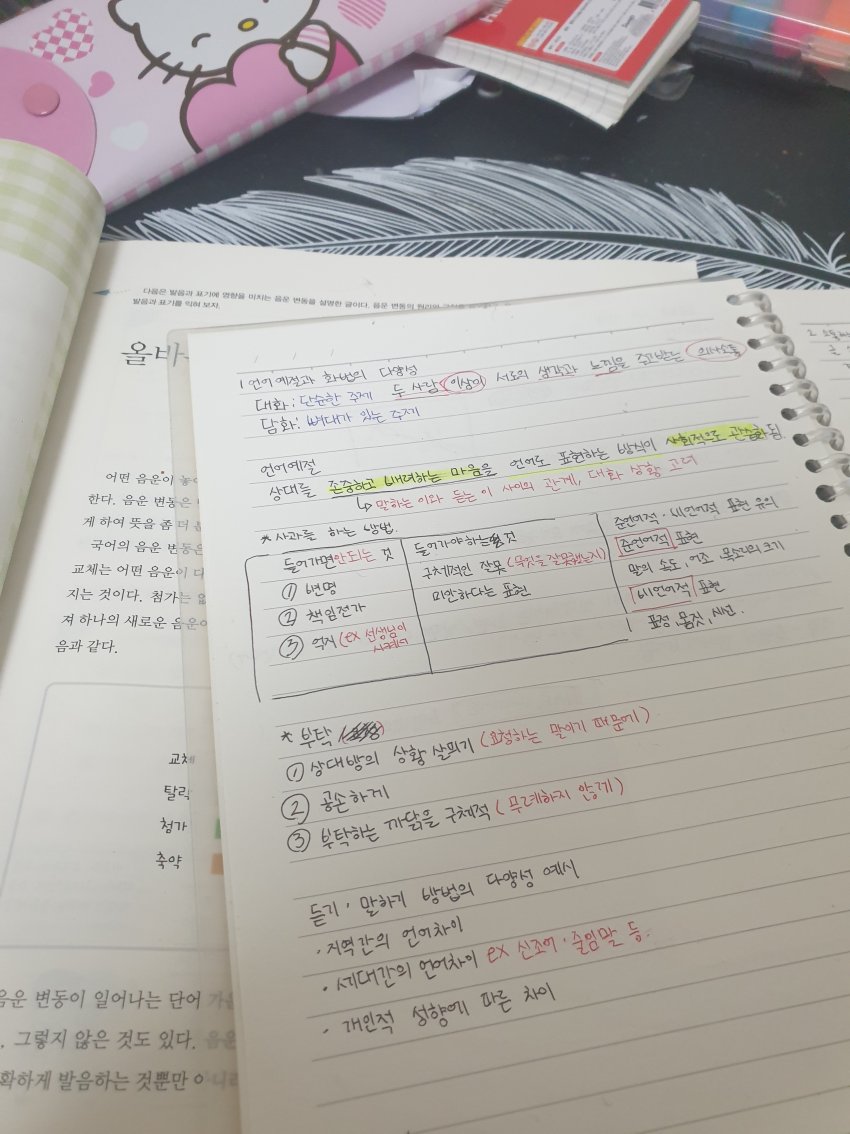 다음은 발음과 표기에 영향을 미치는 음운 변동을 설명한 글이다. 음운 변동의 원리와
발음과 표기를 익혀 보자.
올바
어떤 음운이 놓이
한다. 음운 변동은
게 하여 뜻을 좀 더
국어의 음운 변동은
교체는 어떤 음운이 다
지는 것이다. 첨가는 없
져 하나의 새로운 음운이
음과 같다.
교체
탈락
첨가
축약
음운 변동이 일어나는 단어
. 그렇지 않은 것도 있다. 음운
확하게 발음하는 것뿐만 아니라
1 언어예절과 화법의 다양성
대화 : 단순한 주제 두 사람 이상이 서로의 생각과 느낌을 주고받는 의사소통
담화 : 뼈대가 있는 주제
언어예절
상대를 존중하고 배려하는 마음을 언어로 표현하는 방식이 사회적으로 관습화 됨
↳ 말하는 이와 듣는 이 사이의 관계, 대화 상황 고려
* 사과를 하는 방법.
들어가면 안되는 것
① 변명
② 책임전가
③ 억지 (ex 선생님이
들어가야 하는 것
구체적인 잘못 (무엇을 잘못했는지)
미안하다는 표현
준언어적 · 비언어적 표현 유의
준언어적 표현
말의 속도, 어조, 목소리의 크기
비언어적 표현
표정, 몸짓, 시선.
* 부탁
① 상대방의 상황 살피기 (요청하는 말이기 때문에)
② 공손하게
③ 부탁하는 까닭을 구체적 (무례하지 않게)
듣기 · 말하기 방법의 다양성 예시
· 지역간의 언어차이
· 세대간의 언어차이 ex 신조어 · 줄임말 등.
· 개인적 성향에 따른 차이